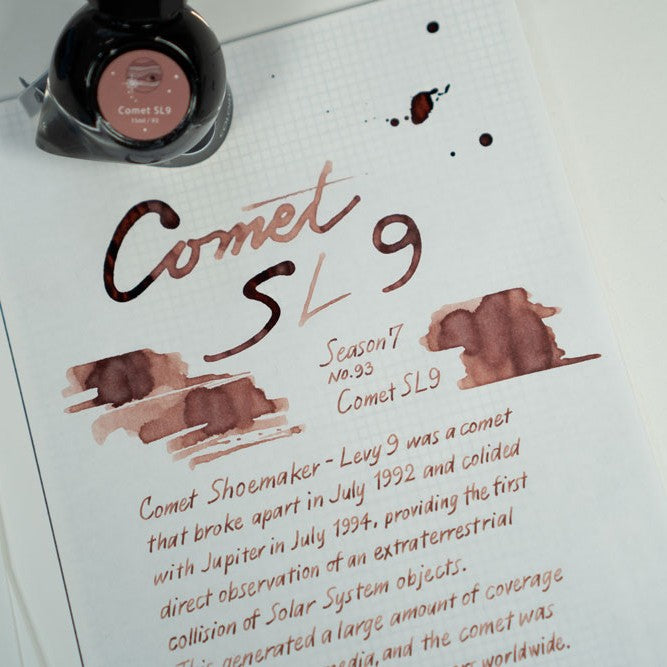 Comet SL9
15ml / 93
Comet
SL 9
Season 7
No.93
Comet SL9
Comet Shoemaker-Levy 9 was a comet
that broke apart in July 1992 and colided
with Jupiter in July 1994, providing the first
direct observation of an extraterrestrial
collision of Solar System objects.
This generated a large amount of coverage
media, and the comet was
worldwide.